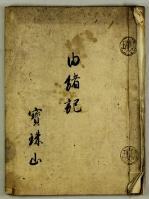 由緒記
寶珠山